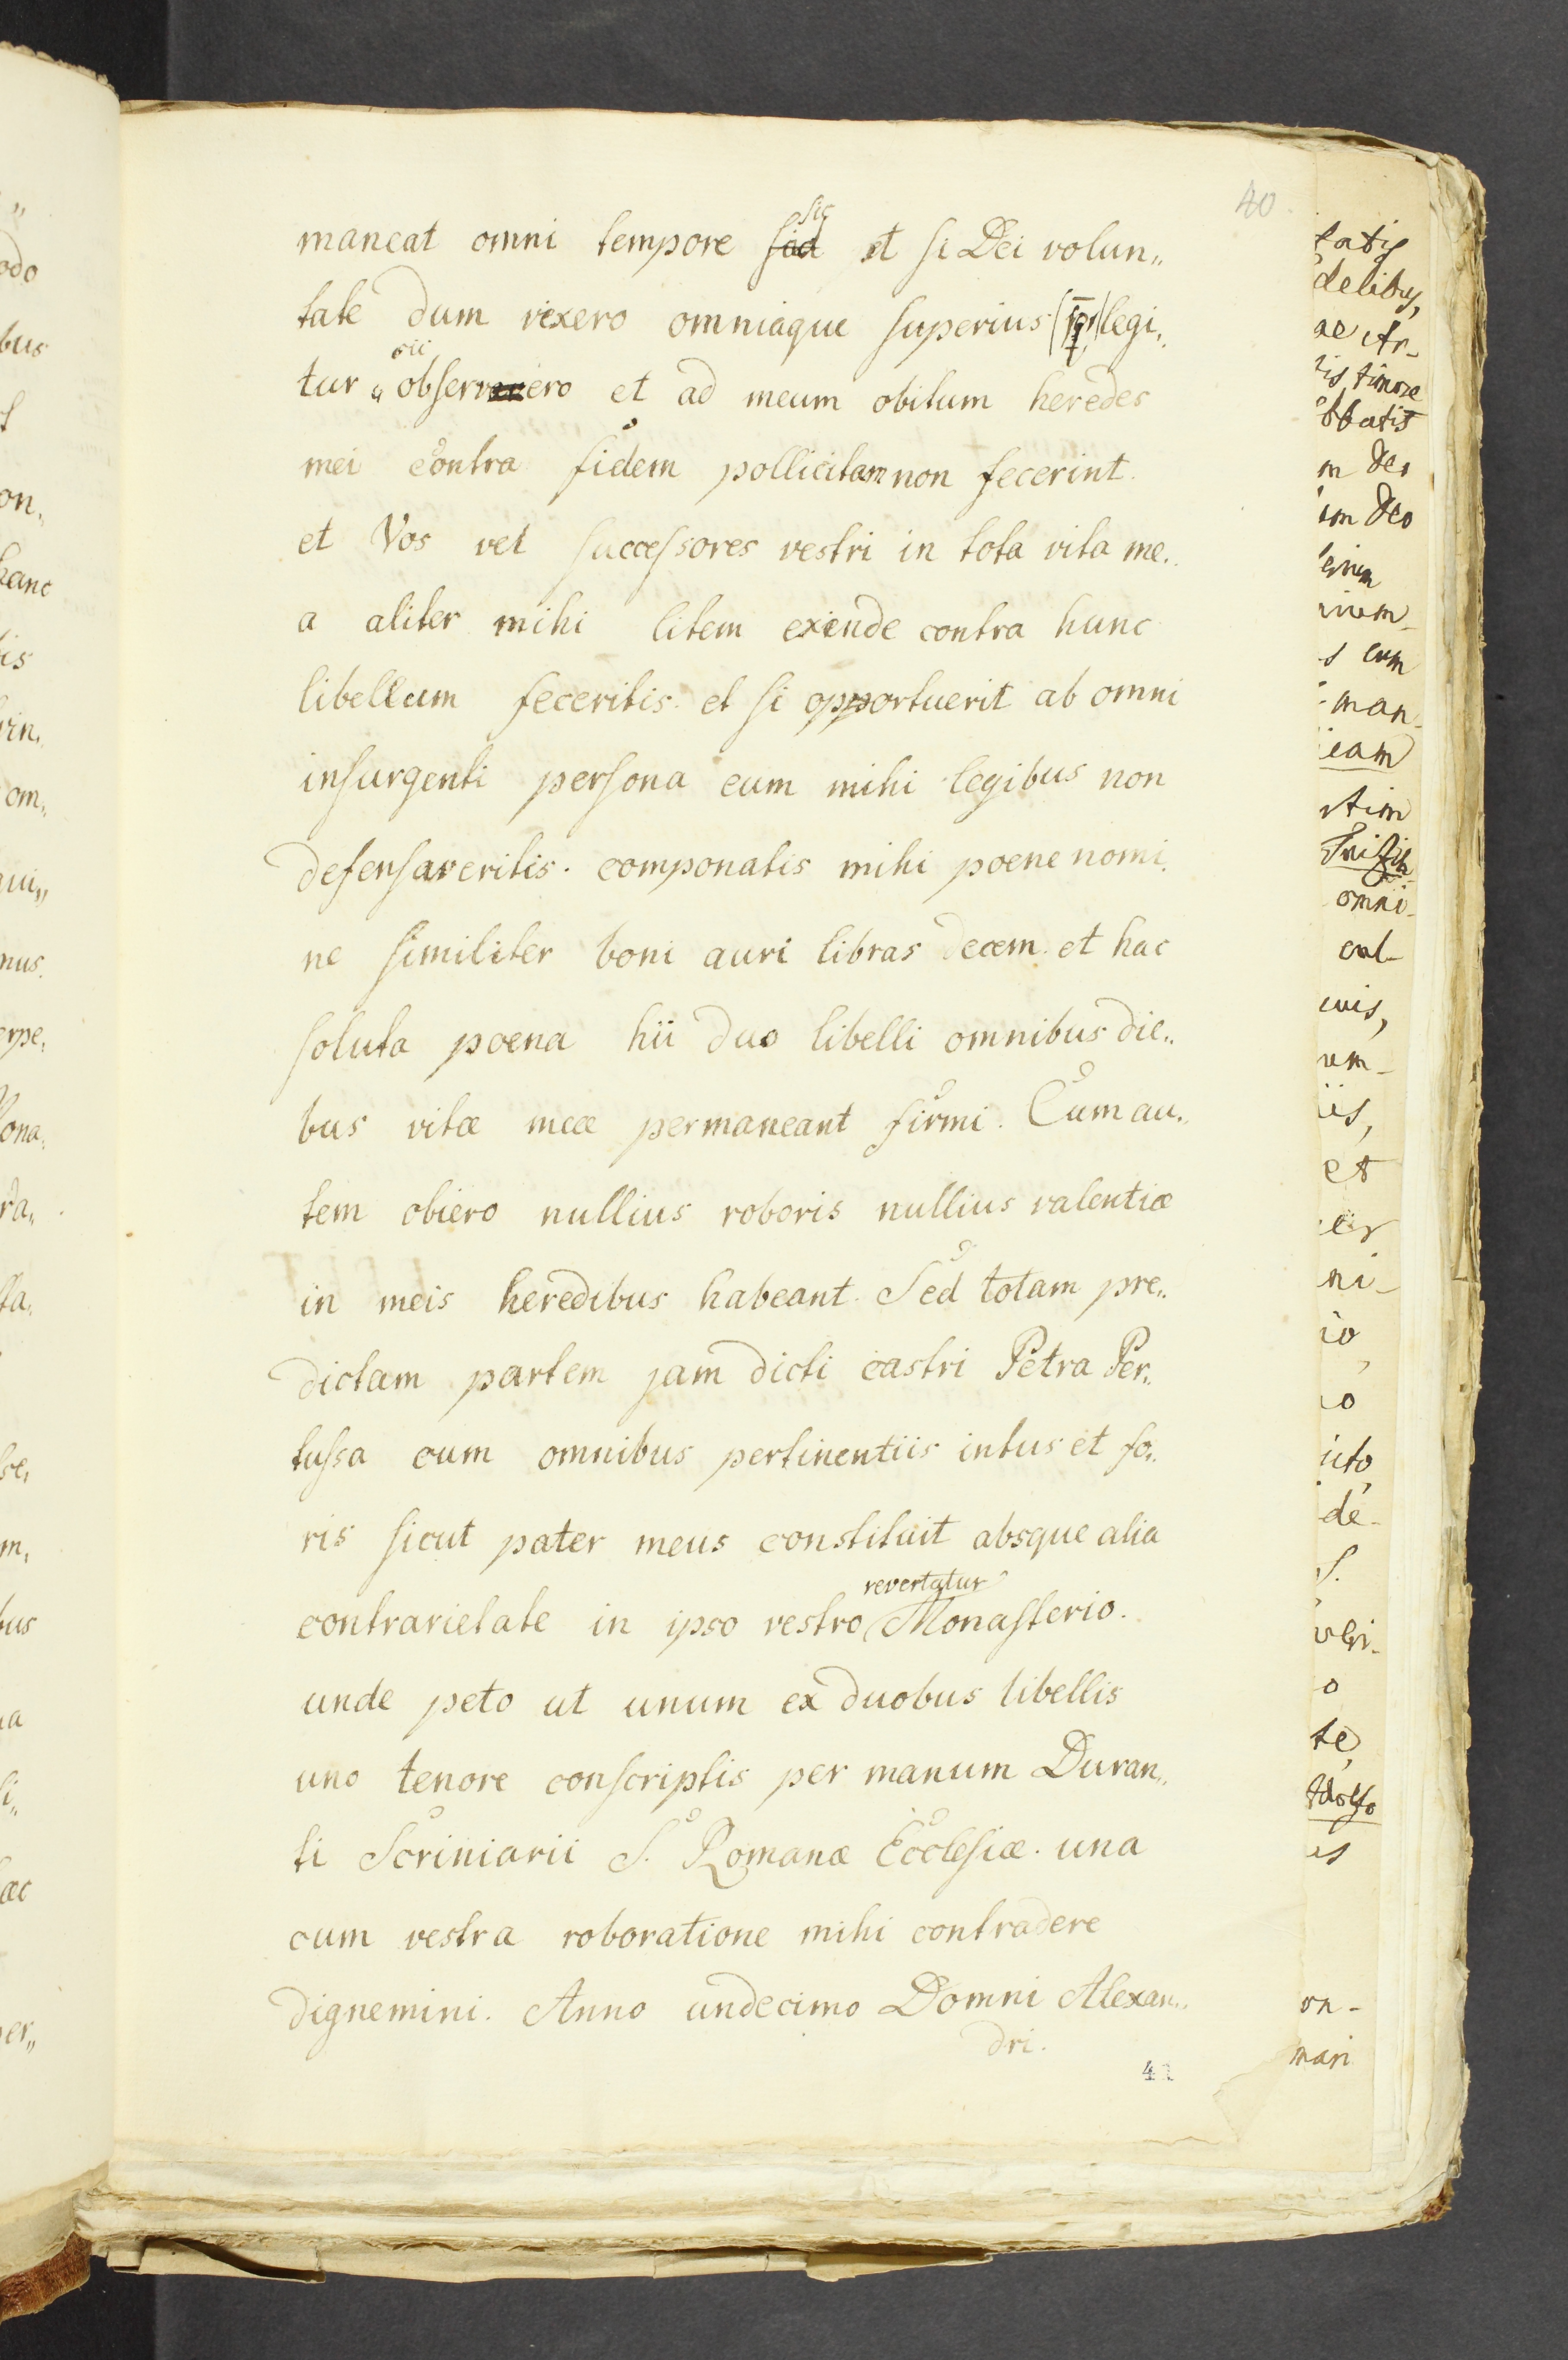 40
maneat omni tempore sid sic et si Dei volun„
tate dum vixero omniaque superius legi„
tur observero et ad meum obitum heredes
mei contra fidem pollicitam non fecerint.
et Vos vel successores vestri in tota vita me„
a aliter mihi litem exinde contra hunc
libellum feceritis. et si opportuerit ab omni
insurgenti persona eum mihi legibus non
defensaveritis. componatis mihi poene nomi„
ne similiter boni auri libras decem. et hac
soluta poena hii duo libelli omnibus die„
bus vitæ meæ permaneant firmi. Cum au„
tem obiero nullius roboris nullius valentiæ
in meis heredibus habeant. Sed totam pre„
dictam partem jam dicti castri Petra Per„
tussa cum omnibus pertinentiis intus et fo„
ris sicut pater meus constituit absque alia
revertatur
contrarietate in ipso vestro Monasterio.
unde peto ut unum ex duobus libellis
uno tenore conscriptis per manum Duran„
ti Scriniarii S. Romanæ Ecclesiæ. una
cum vestra roboratione mihi contradere
dignemini. Anno undecimo Domni Alexan„
dri.
tatis
delibus,
ae Ar-
tis, timore
bbatis
m Deo
um Deo
s eum
man-
eam
omni-
cul-
uis,
rum-
iis,
et
ni-
io,
io
uto,
de-
S.
o
te,
es
on-
mari
odo
bus
on„
hanc
tis
om„
qui„
nus.
erpe„
Mona„
ta„
m„
bus